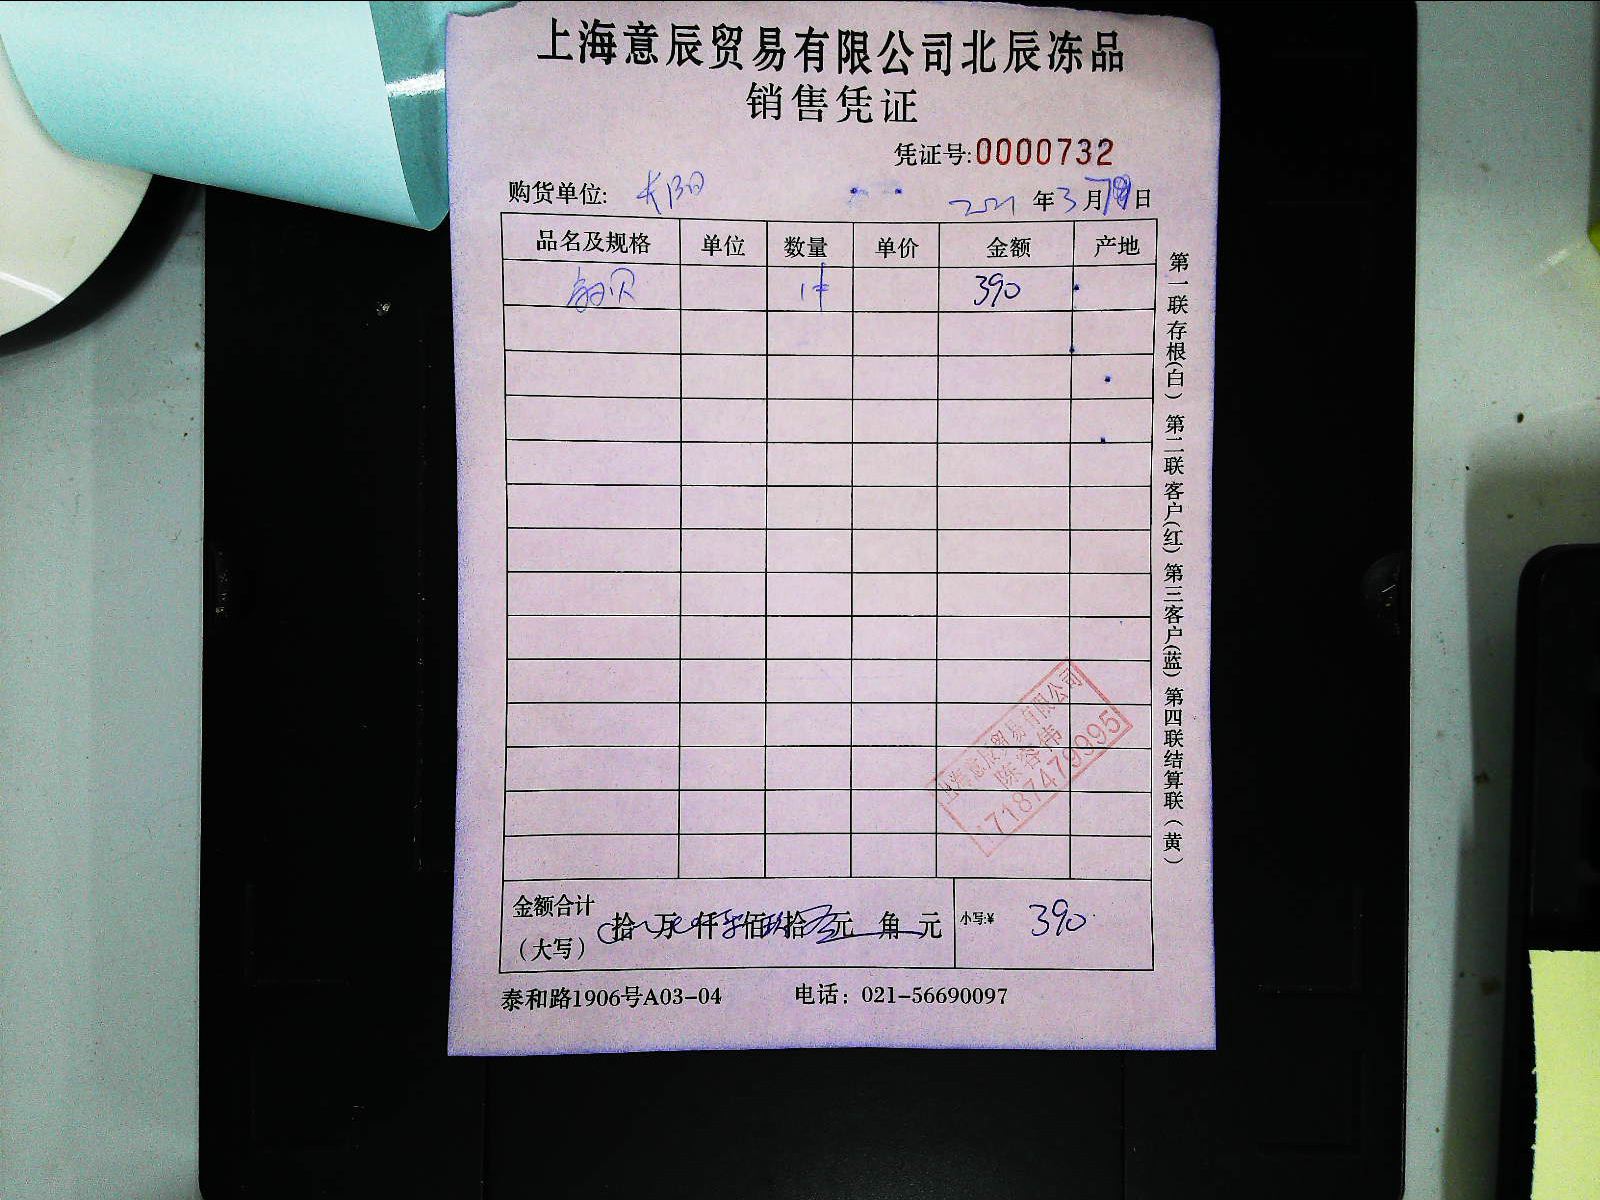 上海意辰贸易有限公司北辰冻品
销售凭证
凭证号:0000732
购货单位: 长阳 2021年3月 日
品名及规格 单位 数量 单价 金额 产地
贝 1件 390
金额合计(大写) 拾 万 仟 佰 拾 元 角 元 小写:¥ 390
泰和路1906号A03-04 电话: 021-56690097
第一联存根(白) 第二联客户(红) 第三客户(蓝) 第四联结算联(黄)
上海意辰贸易有限公司
陈容伟
17187479995